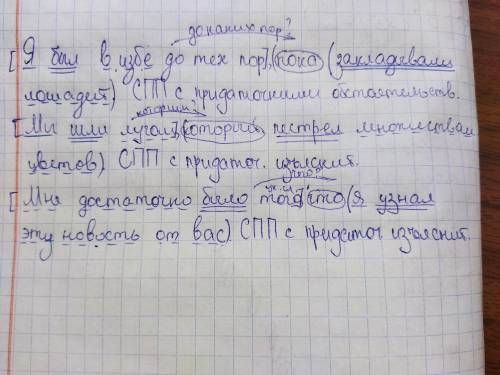 до каких пор?
[Я был в избе до тех пор], (пока (закладывали
лошадей) СПП с придаточними обстоятельств.
которым?
[Мы шли лугом], (который пестрел множеством
цветов) СПП с придаточ. изъяснит.
чего?
ук.сл
[Мне достаточно было того], что (я узнал
эту новость от вас) СПП с придаточ изъяснит.